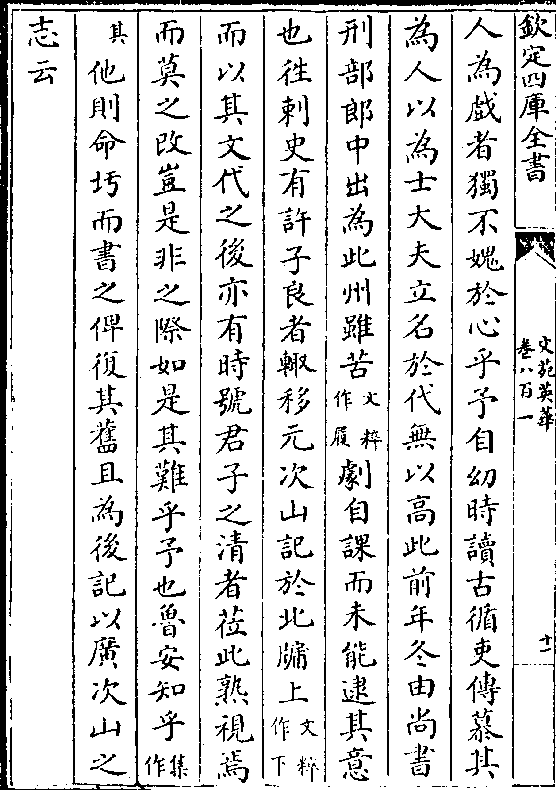 欽定四庫全書
文苑英華
卷八百一
十一
人為戲者獨不媿於心乎予自幼時讀古循吏傳慕其
為人以為士大夫立名於代無以高此前年冬由尚書
刑部郎中出為此州雖苦文粹作履劇自課而未能逮其意
也徃刺史有許子良者輙移元次山記於北牖上文粹作下
而以其文代之後亦有時號君子之清者莅此熟視焉
而莫之改豈是非之際如是其難乎予也魯安知乎集作其
他則命圬而書之俾復其舊且為後記以廣次山之
志云